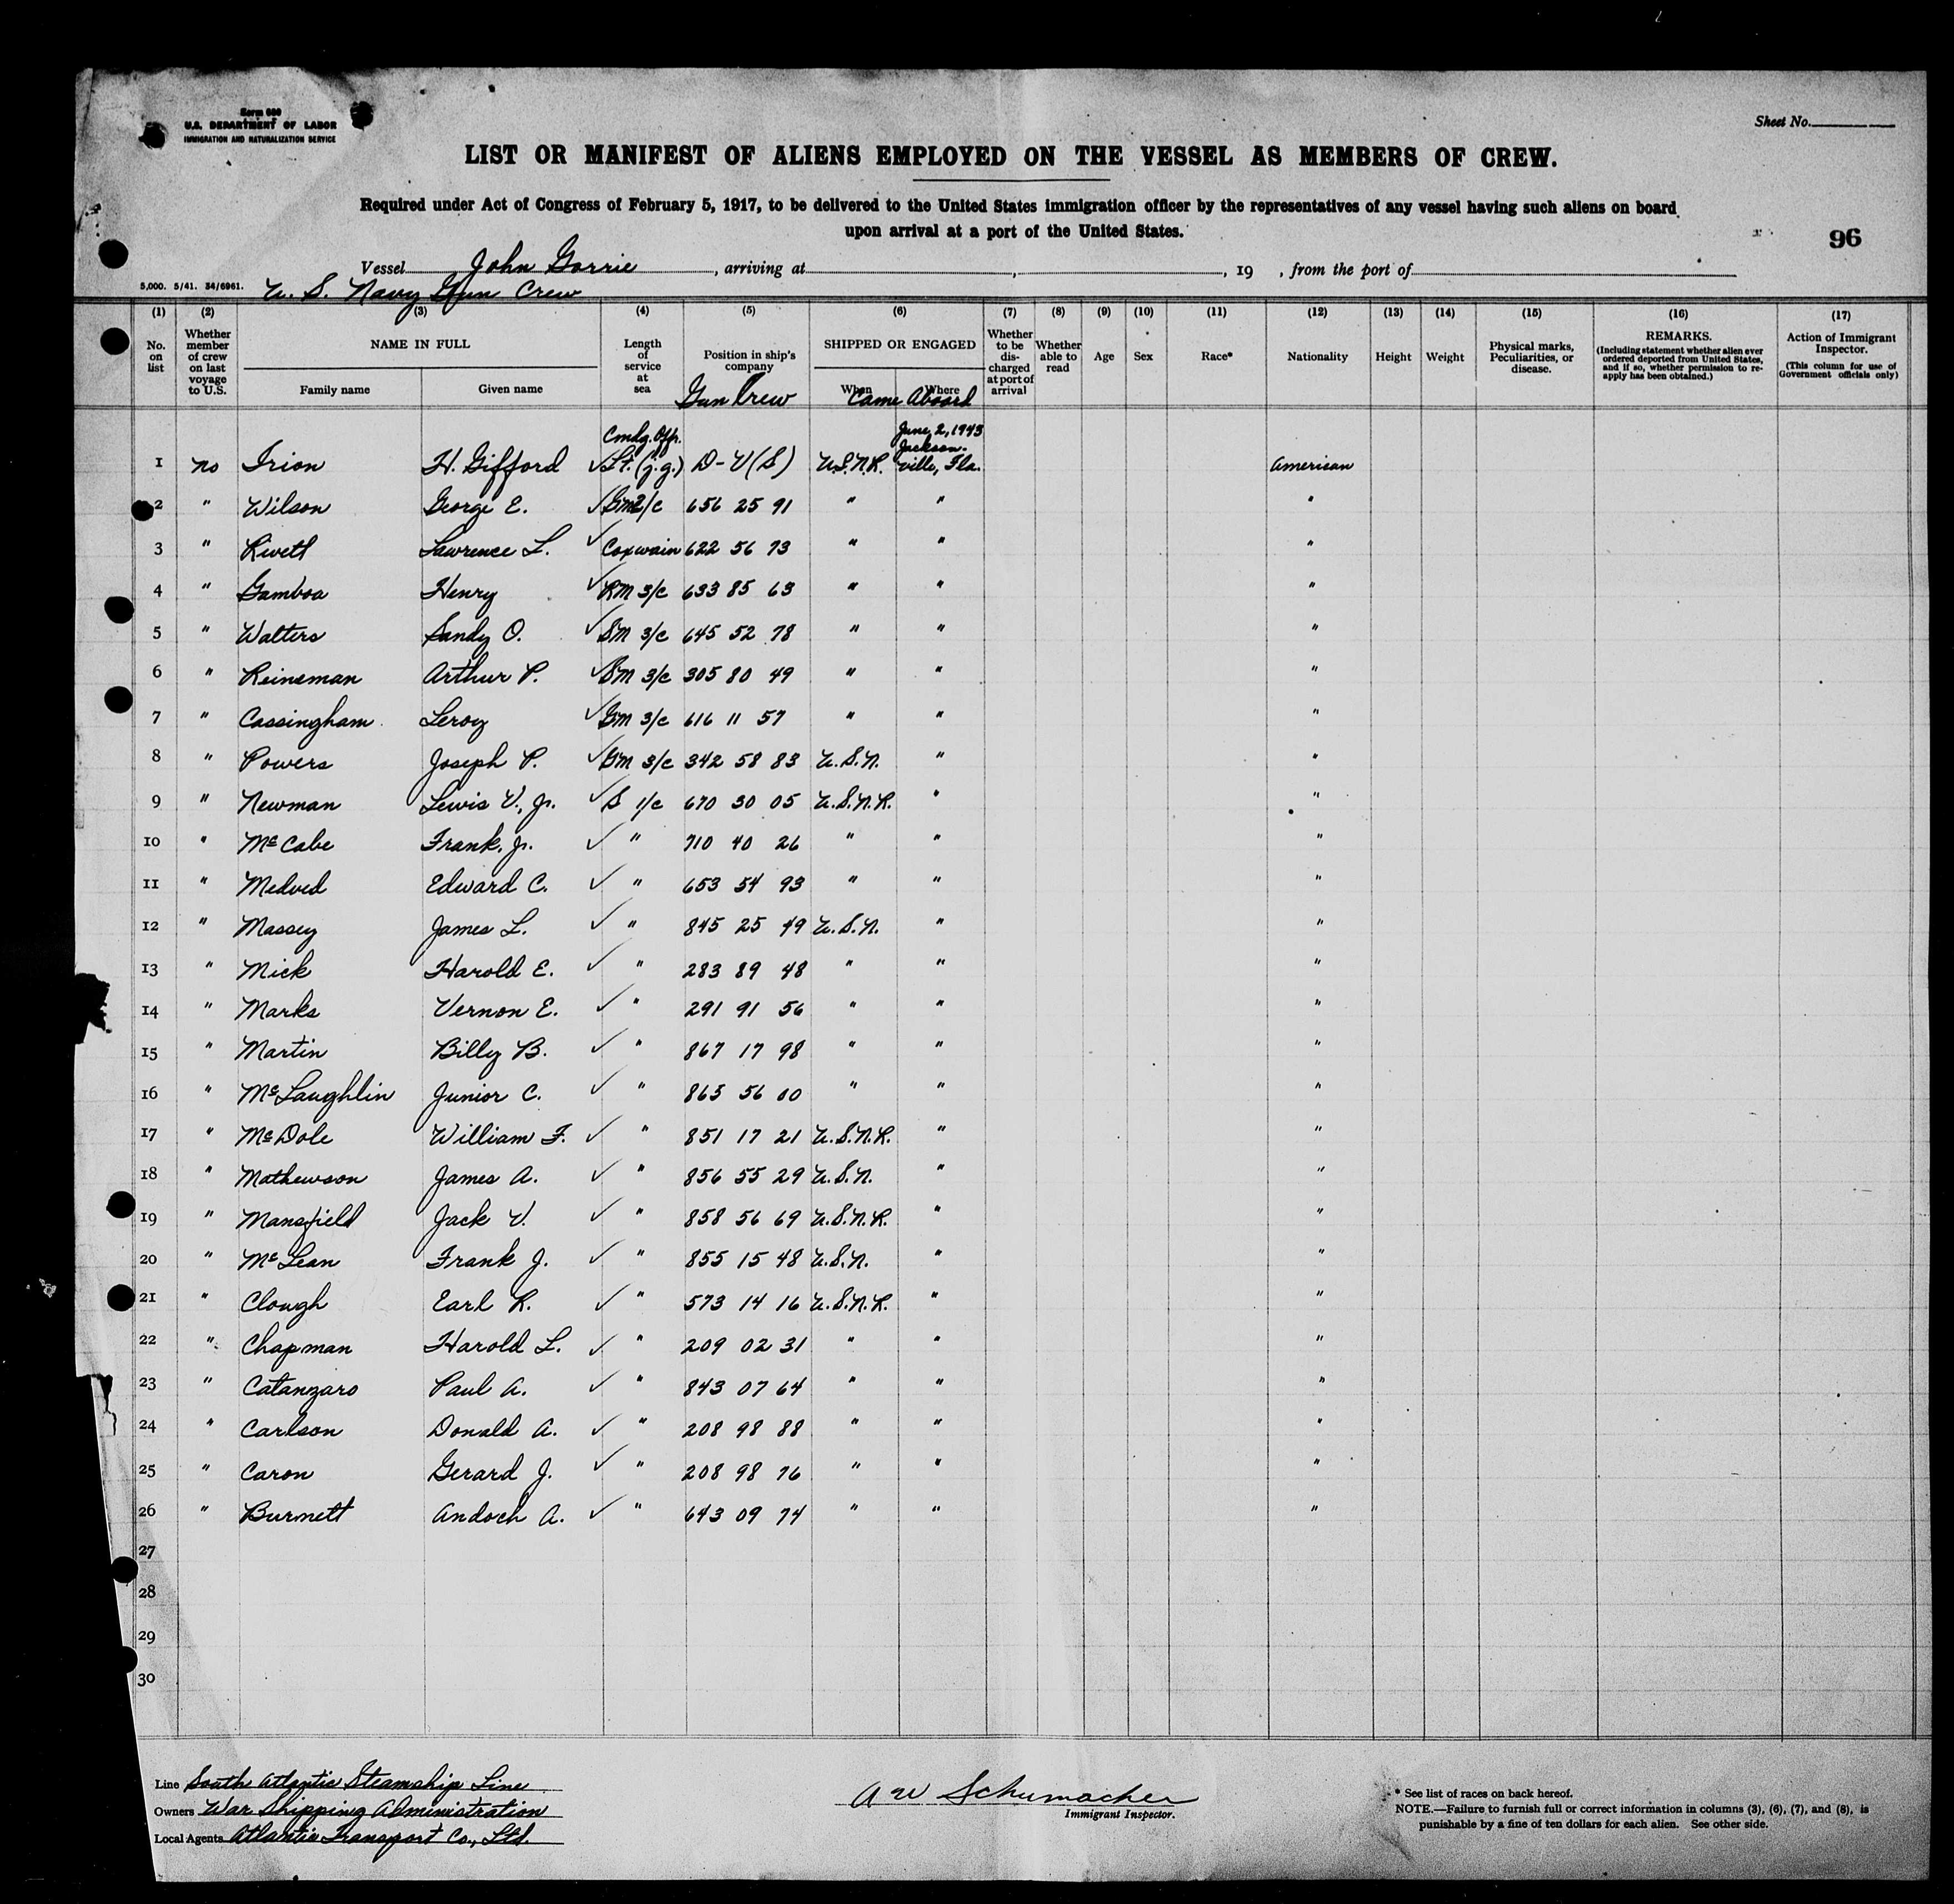 Form 680
U.S. DEPARTMENT OF LABOR
IMMIGRATION AND NATURALIZATION SERVICE
Sheet No.
LIST OR MANIFEST OF ALIENS EMPLOYED ON THE VESSEL AS MEMBERS OF CREW.
Required under Act of Congress of February 5, 1917, to be delivered to the United States immigration officer by the representatives of any vessel having such aliens on board
upon arrival at a port of the United States.
96
Vessel John Gorrie, arriving at , , 19 , from the port of
5,000. 5/41. 34/6961. U. S. Navy Gun Crew
(1) (2) (3) (4) (5) (6) (7) (8) (9) (10) (11) (12) (13) (14) (15) (16) (17)
No. on list
Whether member of crew on last voyage to U.S.
NAME IN FULL
Family name Given name
Length of service at sea
Position in ship's company
Gun Crew
SHIPPED OR ENGAGED
When Where
Came Aboard
Whether to be discharged at port of arrival
Whether able to read
Age
Sex
Race*
Nationality
Height
Weight
Physical marks, Peculiarities, or disease.
REMARKS.
(Including statement whether alien ever ordered deported from United States, and if so, whether permission to re-apply has been obtained.)
Action of Immigrant Inspector.
(This column for use of Government officials only)
Cmdg. Offr. June, 2, 1943
Jackson-
1 no Irion H. Gifford ✓ Lt. (j.g.) D-V(S) U.S.N.R. ville, Fla. American
2 " Wilson George E. ✓ GM2/c 656 25 91 " " "
3 " Rivett Lawrence L. ✓ Coxwain 622 56 73 " " "
4 " Gamboa Henry ✓ RM 3/c 633 85 63 " " "
5 " Walters Sandy O. ✓ SM 3/c 645 52 78 " " "
6 " Reineman Arthur P. ✓ SM 3/c 305 80 49 " " "
7 " Cassingham Leroy ✓ GM 3/c 616 11 57 " " "
8 " Powers Joseph P. ✓ GM 3/c 342 58 83 U.S.N. " "
9 " Newman Lewis V., Jr. ✓ S 1/c 670 30 05 U.S.N.R. " "
10 " McCabe Frank, Jr. ✓ " 710 40 26 " " "
11 " Medved Edward C. ✓ " 653 54 93 " " "
12 " Massey James L. ✓ " 845 25 49 U.S.N. " "
13 " Mick Harold E. ✓ " 283 89 48 " " "
14 " Marks Vernon E. ✓ " 291 91 56 " " "
15 " Martin Billy B. ✓ " 867 17 98 " " "
16 " McLaughlin Junior C. ✓ " 865 56 00 " " "
17 " McDole William F. ✓ " 851 17 21 U.S.N.R. " "
18 " Mathewson James A. ✓ " 856 55 29 U.S.N. " "
19 " Mansfield Jack V. ✓ " 858 56 69 U.S.N.R. " "
20 " McLean Frank J. ✓ " 855 15 48 U.S.N. " "
21 " Clough Earl R. ✓ " 573 14 16 U.S.N.R. " "
22 " Chapman Harold L. ✓ " 209 02 31 " " "
23 " Catanzaro Paul A. ✓ " 843 07 64 " " "
24 " Carlson Donald A. ✓ " 208 98 88 " " "
25 " Caron Gerard J. ✓ " 208 98 76 " " "
26 " Burnett Andoch A. ✓ " 643 09 74 " " "
27
28
29
30
Line South Atlantic Steamship Line
Owners War Shipping Administration
Local Agents Atlantic Transport Co., Ltd.
A W Schumacher
Immigrant Inspector.
* See list of races on back hereof.
NOTE.—Failure to furnish full or correct information in columns (3), (6), (7), and (8), is
punishable by a fine of ten dollars for each alien. See other side.